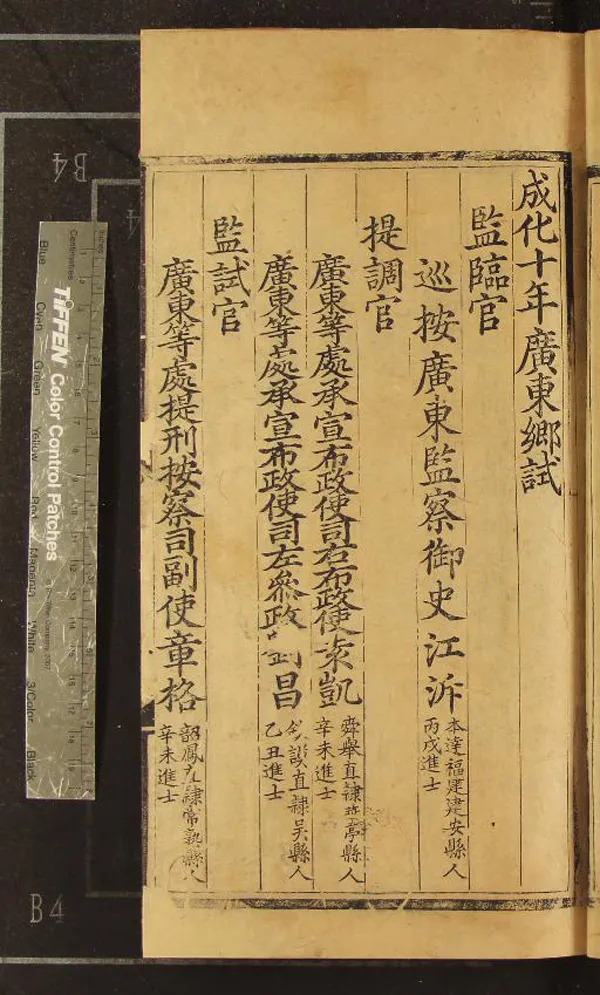 成化十年廣東鄉試
監臨官
巡按廣東監察御史江泝
本達福建建安縣人
丙戌進士
提調官
廣東等處承宣布政使司右布政使
凱
舜舉直隷
亭縣人
辛未進士
廣東等處承宣布政使司左叅政劉昌
談直隷吳縣人
乙丑進士
監試官
廣東等處提刑按察司副使章格
韶鳳直隷常熟縣人
辛未進士
B4
B4
Inches
Centimetres
TIFFEN Color Control Patches
Blue
Cyan
Green
Yellow
Red
Magenta
White
3/Color
Black